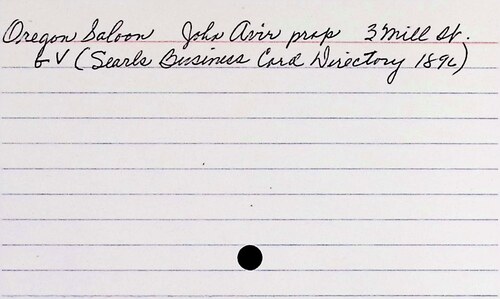 Oregon Saloon John Avir prop 3 Mill St.
G V (Searls Business Card Directory 1896)